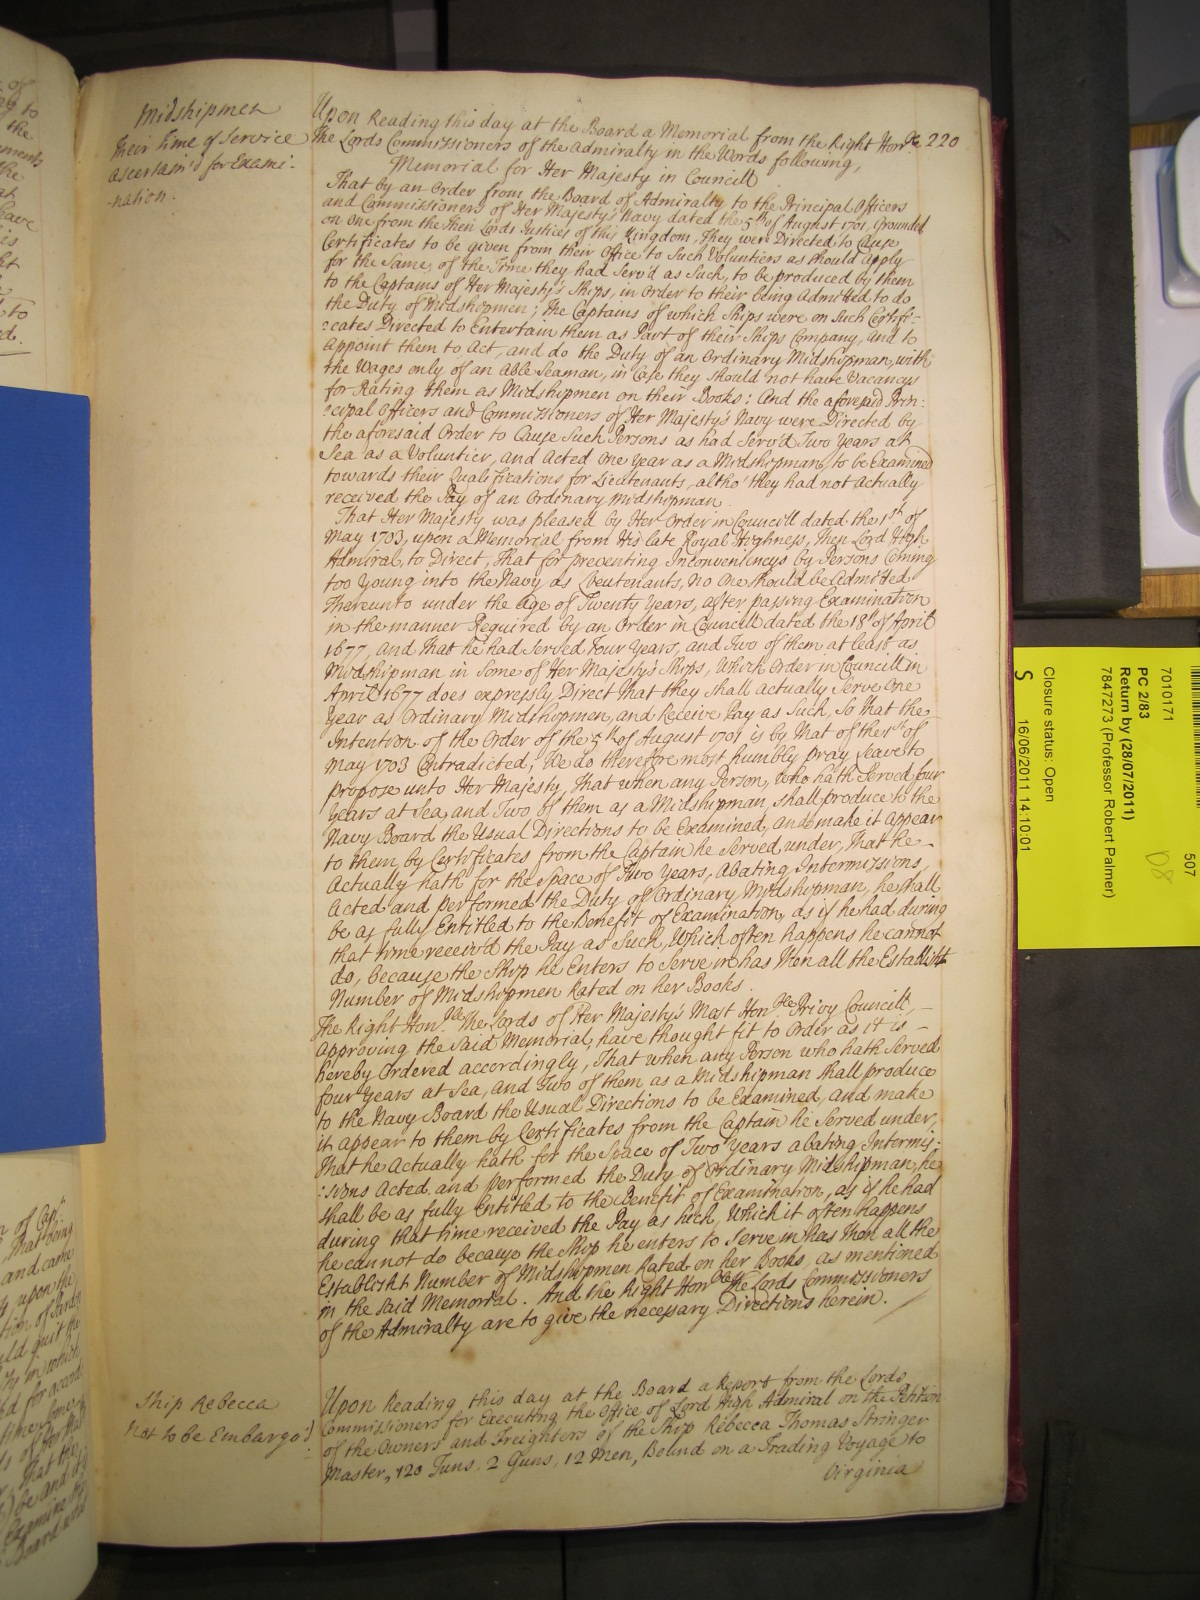 220
Midshipmen
Their Time of Service
ascertain'd for Exami:
:nation.
Upon Reading this day at the Board a Memorial from the Right Honble
The Lords Commissioners of the Admiralty in the Words following,
Memorial for Her Majesty in Councill
That by an Order from the Board of Admiralty to the Principal Officers
and Commissioners of Her Majesty's Navy dated the 5th of August 1701, Grounded
on One from the then Lords Justices of this Kingdom, They were Directed to Cause
Certificates to be given from their Office to Such Voluntiers as should apply
for the Same, of the Time they had Serv'd as Such, to be produced by them
to the Captains of Her Majesty's Ships, in Order to their being Admitted to do
the Duty of Midshipmen; the Captains of which Ships were on Such Certifi=
:cates Directed to Entertain them as Part of their Ships Company, and to
appoint them to Act, and do the Duty of an Ordinary Midshipman, with
the Wages only of an Able Seaman, in Case they should not have Vacancys
for Rating them as Midshipmen on their Books: And the aforesaid Prin:
:cipal Officers and Commissioners of Her Majesty's Navy were Directed by
the aforesaid Order to Cause Such Persons as had Serv'd Two Years at
Sea as a Voluntier, and Acted One Year as a Midshipman, to be Examined
towards their Qualifications for Lieutenants, altho' they had not Actually
received the Pay of an Ordinary Midshipman.
That Her Majesty was pleased by Her Order in Councill dated the 1st of
May 1703, upon a Memorial from His late Royal Highness, then Lord High
Admiral, to Direct, That for preventing Inconveniencys by Persons Coming
too Young into the Navy as Lieutenants, no One should be Admitted
Thereunto under the Age of Twenty Years, after passing Examination
in the manner Required by an Order in Councill dated the 18th of April
1677, and That he had Served Four Years, and Two of them at least as
Midshipman in Some of Her Majesty's Ships, Which Order in Councill in
April 1677 does expressly Direct That they shall actually Serve One
Year as Ordinary Midshipmen, and Receive Pay as Such, So that the
Intention of the Order of the 5th of August 1701 is by that of the 1st of
May 1703 Contradicted; We do therefore most humbly pray Leave to
propose unto Her Majesty, That when any Person, Who hath Served four
Years at Sea, and Two of them as a Midshipman, shall produce to the
Navy Board the Usual Directions to be Examined, and make it appear
to them by Certificates from the Captain he Served under, That he
Actually hath for the Space of Two Years, Abating Intermissions,
Acted and performed the Duty of Ordinary Midshipman, he shall
be as fully Entitled to the Benefit of Examination, as if he had during
that time receiv'd the Pay as Such, Which often happens he cannot
do, because the Ship he Enters to Serve in has then all the Establisht
Number of Midshipmen Rated on her Books.
The Right Honble the Lords of Her Majesty's Most Honble Privy Councill,
approving the said Memorial, have thought fit to Order as it is
hereby Ordered accordingly, That when any Person who hath Served
four Years at Sea, and Two of them as a Midshipman shall produce
to the Navy Board the Usual Directions to be Examined, and make
it appear to them by Certificates from the Captain he Served under,
That he Actually hath for the Space of Two Years abating Intermis:
:sions Acted and performed the Duty of Ordinary Midshipman, he
shall be as fully Entitled to the Benefit of Examination, as if he had
during that time received the Pay as such, Which it often happens
he cannot do because the Ship he enters to Serve in has then all the
Establisht Number of Midshipmen Rated on her Books, as mentioned
in the said Memorial. And the Right Honble the Lords Commissioners
of the Admiralty are to give the necessary Directions herein.
Ship Rebecca
not to be Embargo'd
Upon Reading this day at the Board a Report from the Lords
Commissioners for Executing the Office of Lord High Admiral on the Petition
of the Owners and Freighters of the Ship Rebecca Thomas Stringer
Master, 120 Tuns, 2 Guns, 12 Men, Bound on a Trading Voyage to
Virginia
7010171
507
PC 2/83
Return by (28/07/2011)
7847273 (Professor Robert Palmer)
D8
Closure status: Open
S
16/06/2011 14:10:01